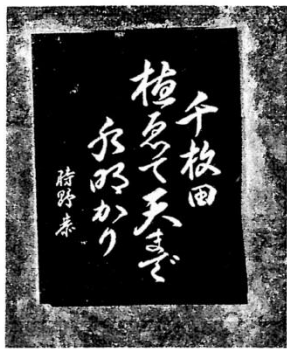 千枚田
植ゑて天まで
水明かり
時野 泰